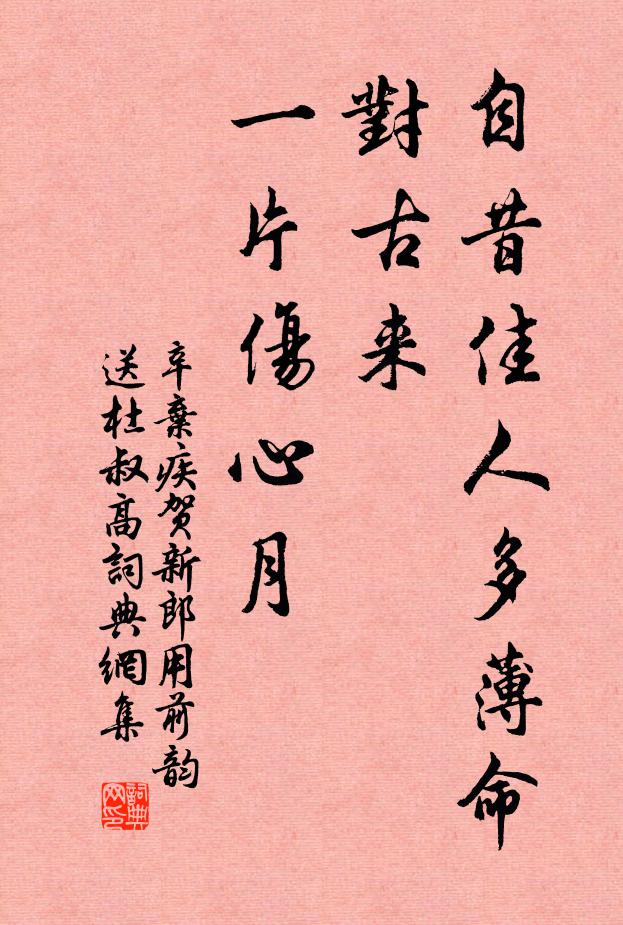 自昔佳人多薄命
對古来
一片傷心月
辛棄疾贺新郎用前韵
送杜叔高詞典網集
詞典
网印